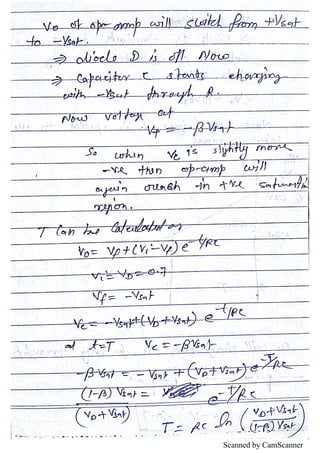 Vo of op-amp will switch from +Vsat
to -Vsat.
⇒ diode D is off Now
⇒ Capacitor C starts charging
with -Vsat through R.
Now voltage at
Vp = -βVsat
So when Vc is slightly more
-ve than op-amp will
again switch to +ve saturation
region.
T can be calculated as
Vo = Vf + (Vi - Vf) e^-t/RC
Vi = VD = 0.7
Vf = -Vsat
Vc = -Vsat + (VD + Vsat) e^-t/RC
at t=T Vc = -βVsat
-βVsat = -Vsat + (VD + Vsat) e^-T/RC
(1-β) Vsat / (VD + Vsat) = e^-T/RC
T = RC ln (VD + Vsat / (1-β) Vsat)
Scanned by CamScanner